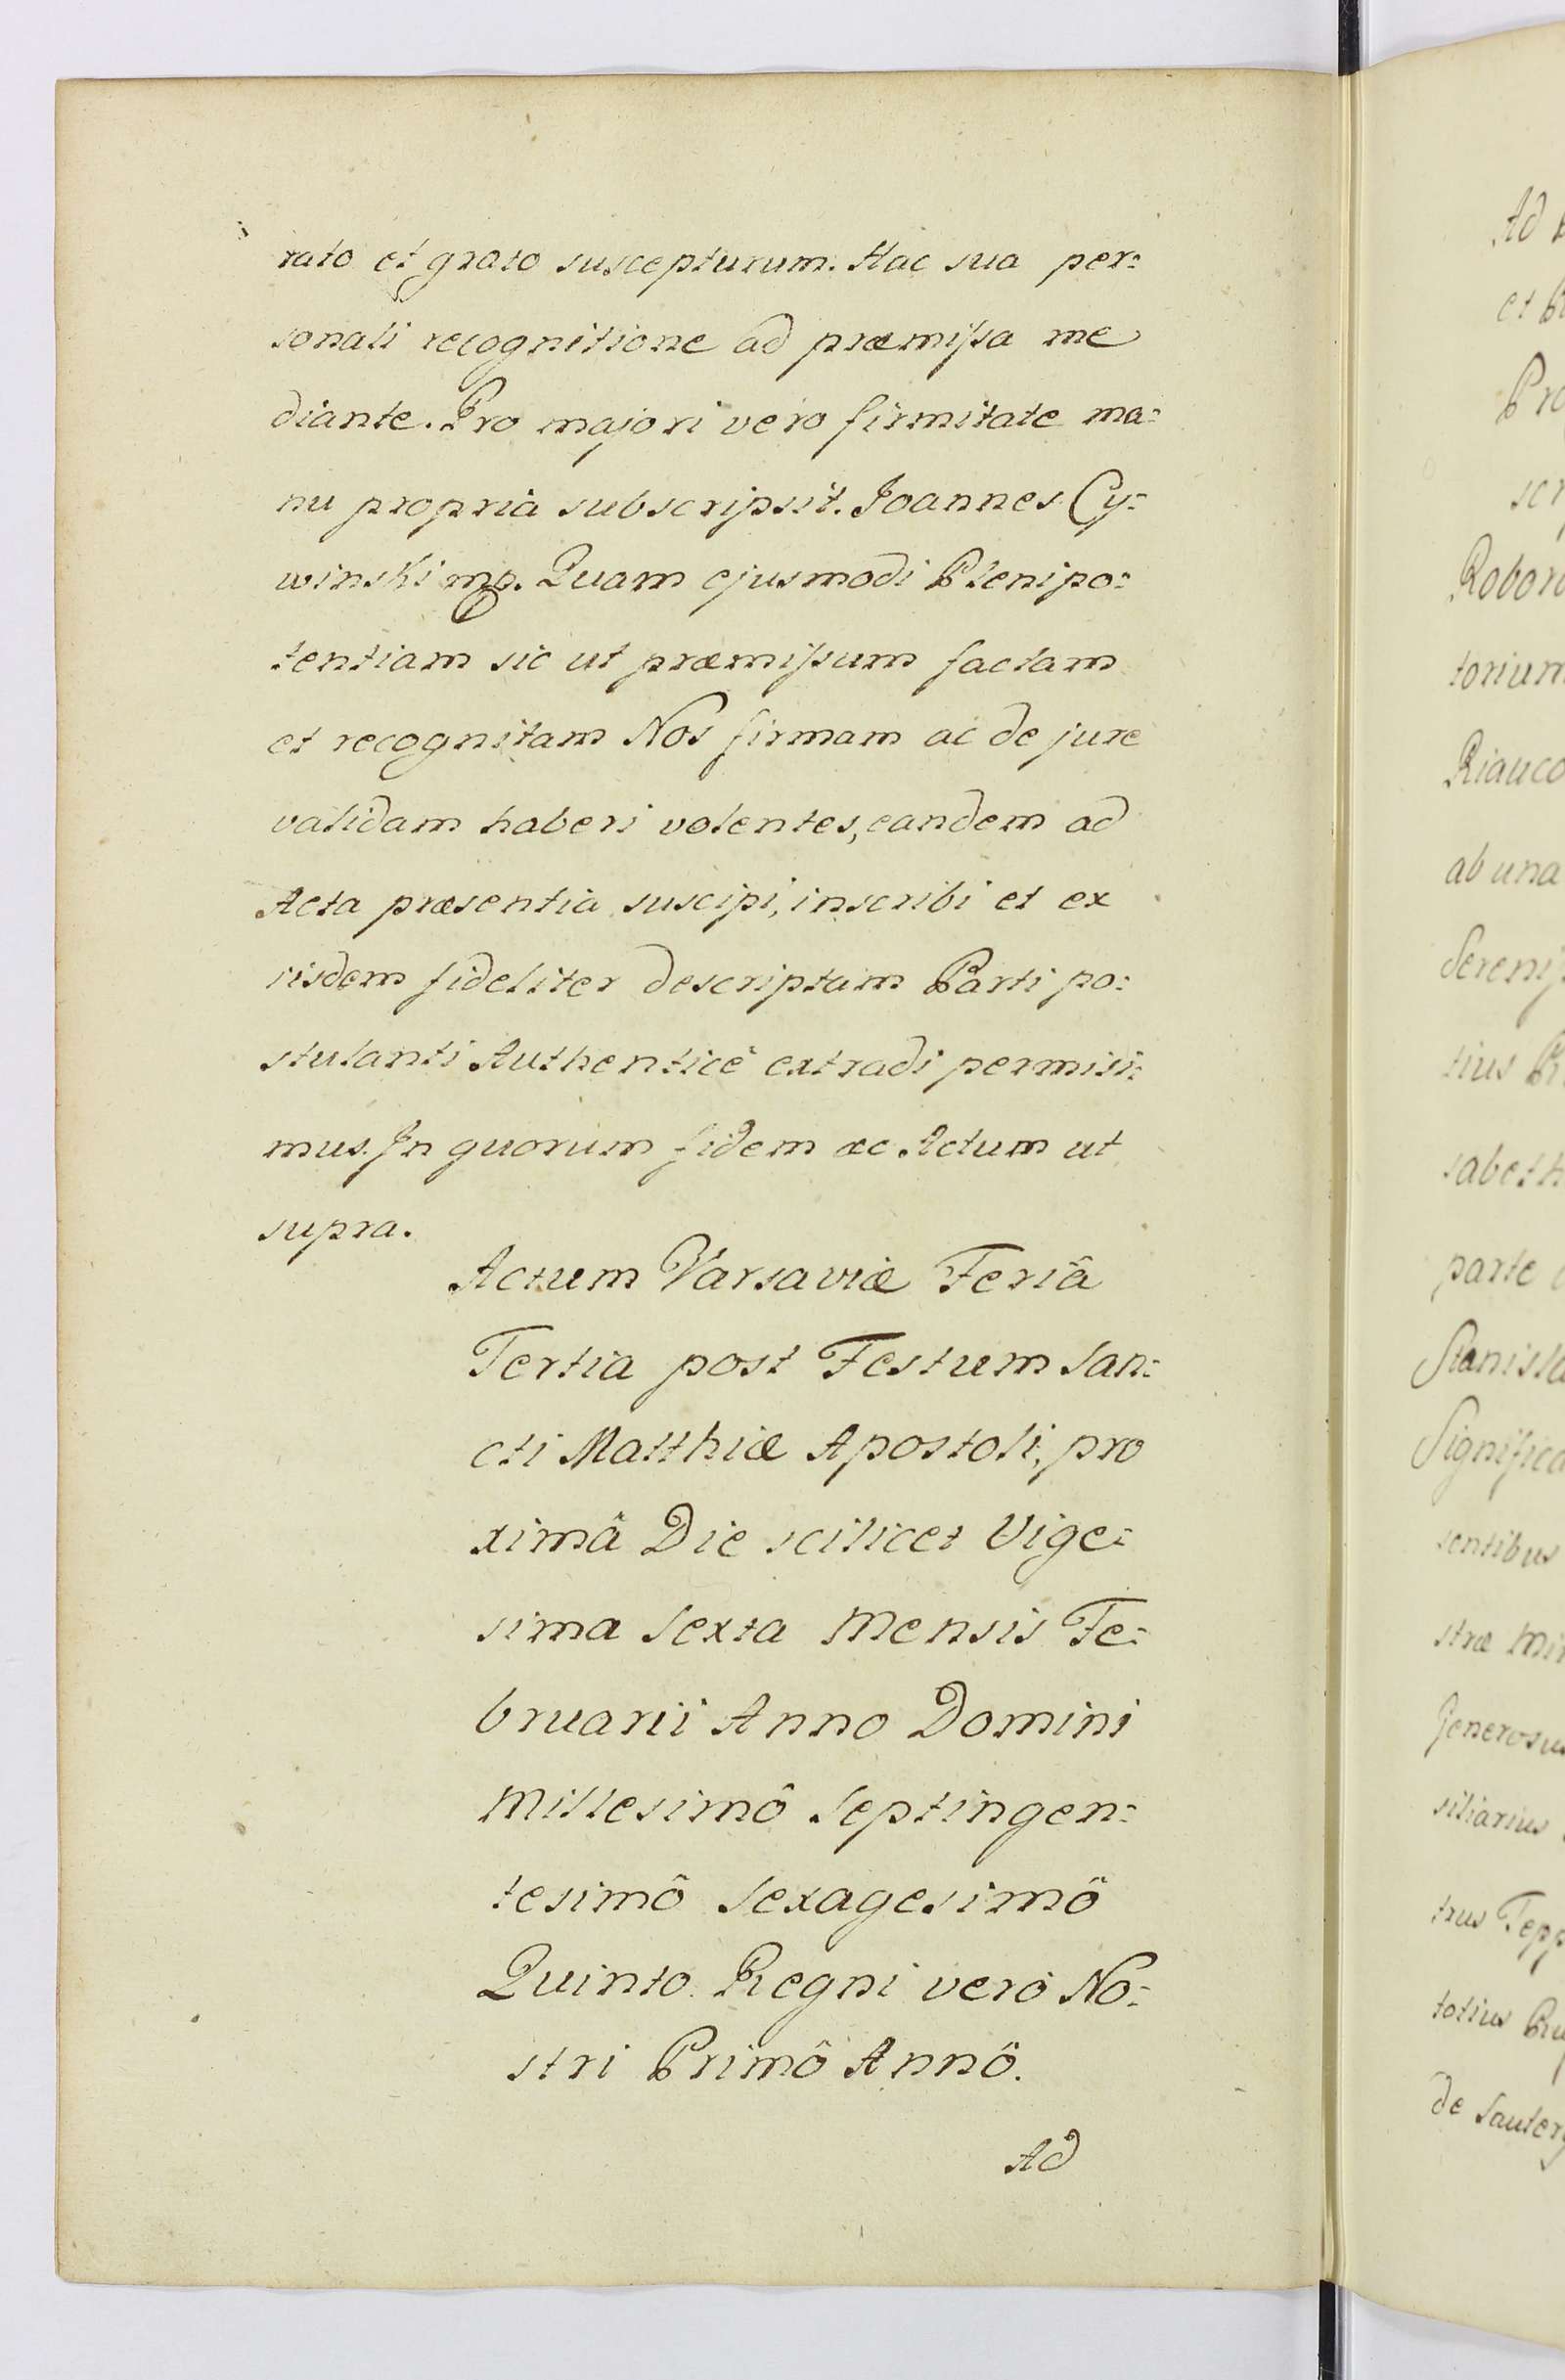 rato et grato suscepturum. Hac sua per:
sonali recognitione ad præmissa me
diante. Pro majori vero firmitate ma:
nu propria subscripsit. Joannes Cy:
winski mp. Quam ejusmodi Plenipo:
tentiam sic ut præmissum factam
et recognitam Nos firmam ac de jure
validam haberi volentes, eandem ad
Acta præsentia suscipi, inscribi et ex
iisdem fideliter descriptam Parti po:
stulanti Authenticè extradi permisi:
mus. In quorum fidem ac Actum ut
supra.
Actum Varsaviæ Feriâ
Tertia post Festum San:
cti Matthiæ Apostoli, pro
ximâ Die scilicet Vige:
sima Sexta Mensis Fe:
bruarii Anno Domini
Millesimô Septingen:
tesimô Sexagesimô
Quinto. Regni verò No:
stri Primô Annô.
Ad
Ad
et
Pro
Robor
torium
Riauco
ab una
Sereniss
tius
sabeth
parte
Stanisla
Significa
sentibus
stræ
Generosu
siliarius
trus Tepp
totius
de Sauter